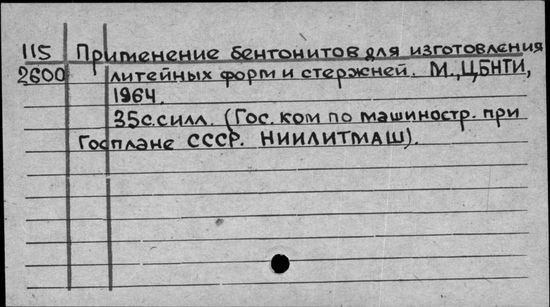 115 Применение бентонитов для изготовления
2600 литейных форм и стержней. М., ЦБНТИ,
1964.
35с.силл. (Гос. ком по машиностр. при
Госплане СССР. НИИЛИТМАШ).